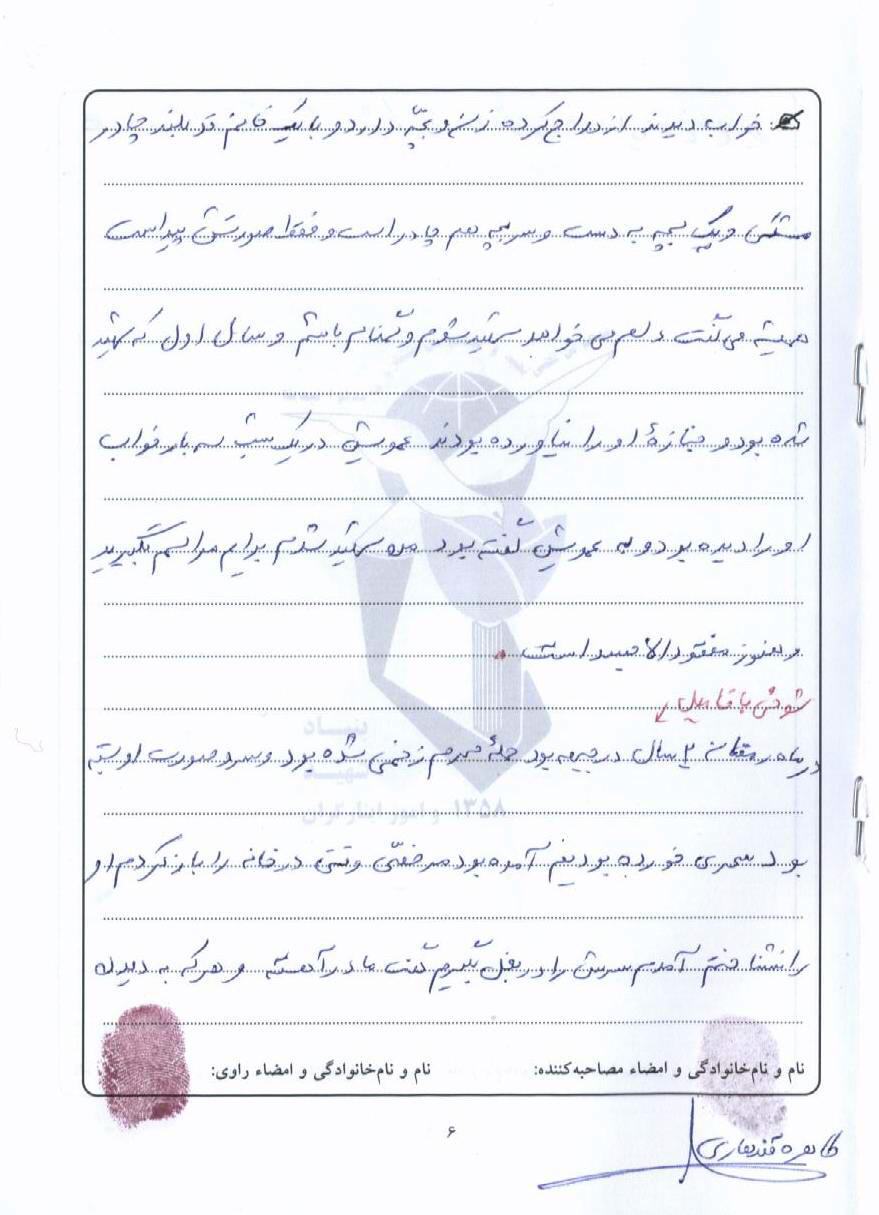 خواب دیدند ازدواج کرده زن و بچه دارد و با یک خانم قد بلند چادر
مشکی و یک بچه به دست و سر بچه هم چادر است و فقط صورتش پیداست
همیشه می گفت دلم می خواهد شهید شوم و گمنام باشم و سال اول که شهید
شده بود و جنازهٔ او را نیاورده بودند عمویش در یک شب سه بار خواب
او را دیده بود و به عمویش گفته بود من شهید شدم برایم مراسم بگیرید
و هنوز مفقودالاجسد است.
شوخی با فامیل
در ماه رمضان ۲ سال در جبهه بود زخمی شده بود و سر و صورت او بسته
بود سحری خورده بودیم آمده بود مرخصی وقتی در خانه را باز کردم او
را نشناختم آمدم سرش را در بغل بگیرم گفت مادر آهسته و هر که به دیدن
بنیاد
شهید
و امور ایثارگران
۱۳۵۸
نام و نام‌خانوادگی و امضاء مصاحبه‌کننده:
نام و نام‌خانوادگی و امضاء راوی:
طاهره قندهاری
۶